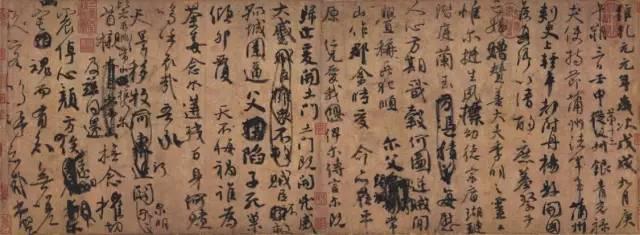 維乾元元年歲次戊戌九月庚
午朔三日壬申第十三叔銀青光祿
夫使持節蒲州諸軍事蒲州
刺史上輕車都尉丹楊縣開國
侯真卿以清酌庶羞祭于
亡姪贈贊善大夫季明之靈曰
惟爾挺生夙標幼德宗廟瑚璉
階庭蘭玉每慰
人心方期戩穀何圖逆賊閒
釁稱兵犯順爾父竭誠常
山作郡余時受命亦在平
原仁兄愛我俾爾傳言爾既
歸止爰開土門土門既開凶威
大蹙賊臣不救
孤城圍逼父陷子死巢
傾卵覆天不悔禍誰為
荼毒念爾遘殘百身何贖
嗚呼哀哉吾承
天澤移牧河關泉明
比者再陷常山攜爾
首櫬及茲同還撫念摧切
震悼心顏方俟
魂而有知無嗟
久客嗚呼哀哉尚饗